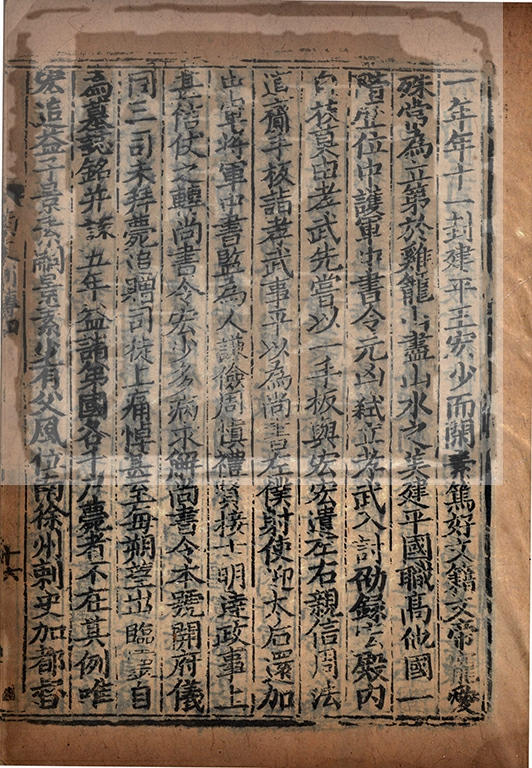 一年年十一封建平王宏少而閑素篤好文籍文帝寵愛
殊常為立第於雞籠山盡山水之美建平國職髙他國一
階歷位中護軍中書令元凶弒立孝武入討劭錄宏殿内
自拔莫由孝武先嘗以一手板與宏宏遣左右親信周法
道齎手板詣孝武事平以為尚書左僕射使迎太后還加
中軍將軍中書監為人謙儉周慎禮賢接士明達政事上
甚信仗之轉尚書令宏少多病求解尚書令本號開府儀
同三司未拜薨追贈司徒上痛悼甚至每朔望出臨靈自
為墓誌銘并誄五年益諸弟國各千户薨者不在其例唯
宏追益子景素嗣景素少有父風位南徐州刺史加都督
十六